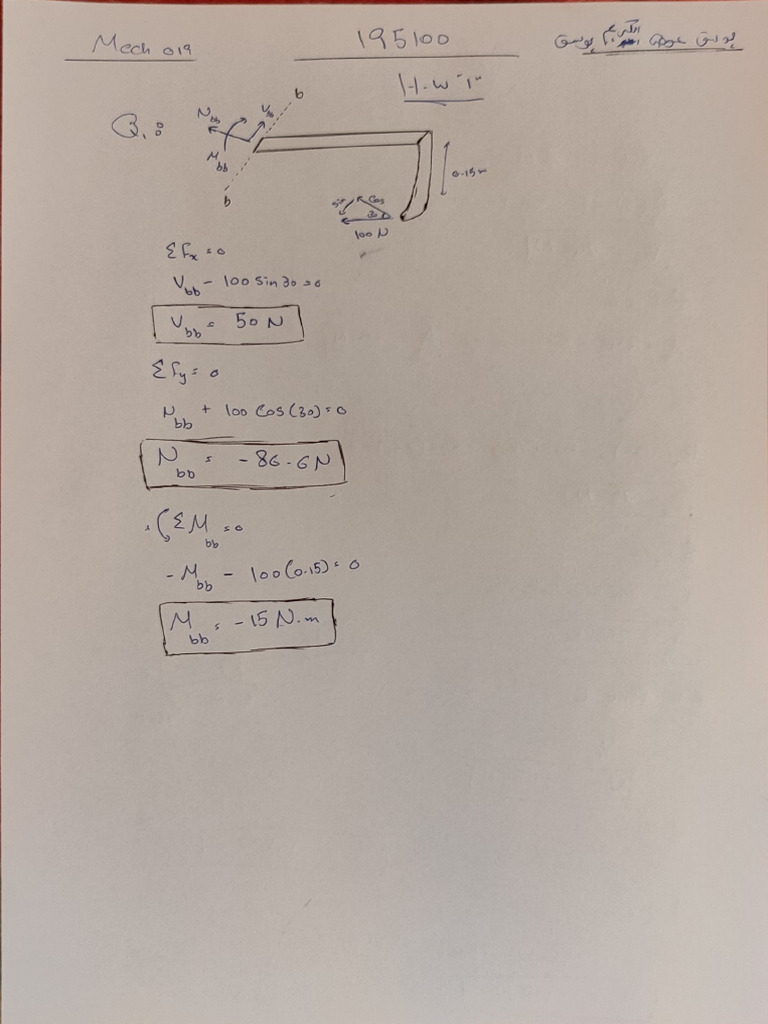 Mech 019
195100
يوسف عوض الكريم يوسف
H.W "1"
Q1:
b
N bb
V bb
M bb
b
0.15m
sin
cos
30
100 N
ΣFx = 0
Vbb - 100 sin 30 = 0
Vbb = 50 N
ΣFy = 0
Nbb + 100 Cos(30) = 0
Nbb = -86.6 N
ΣMbb = 0
-Mbb - 100(0.15) = 0
Mbb = -15 N.m